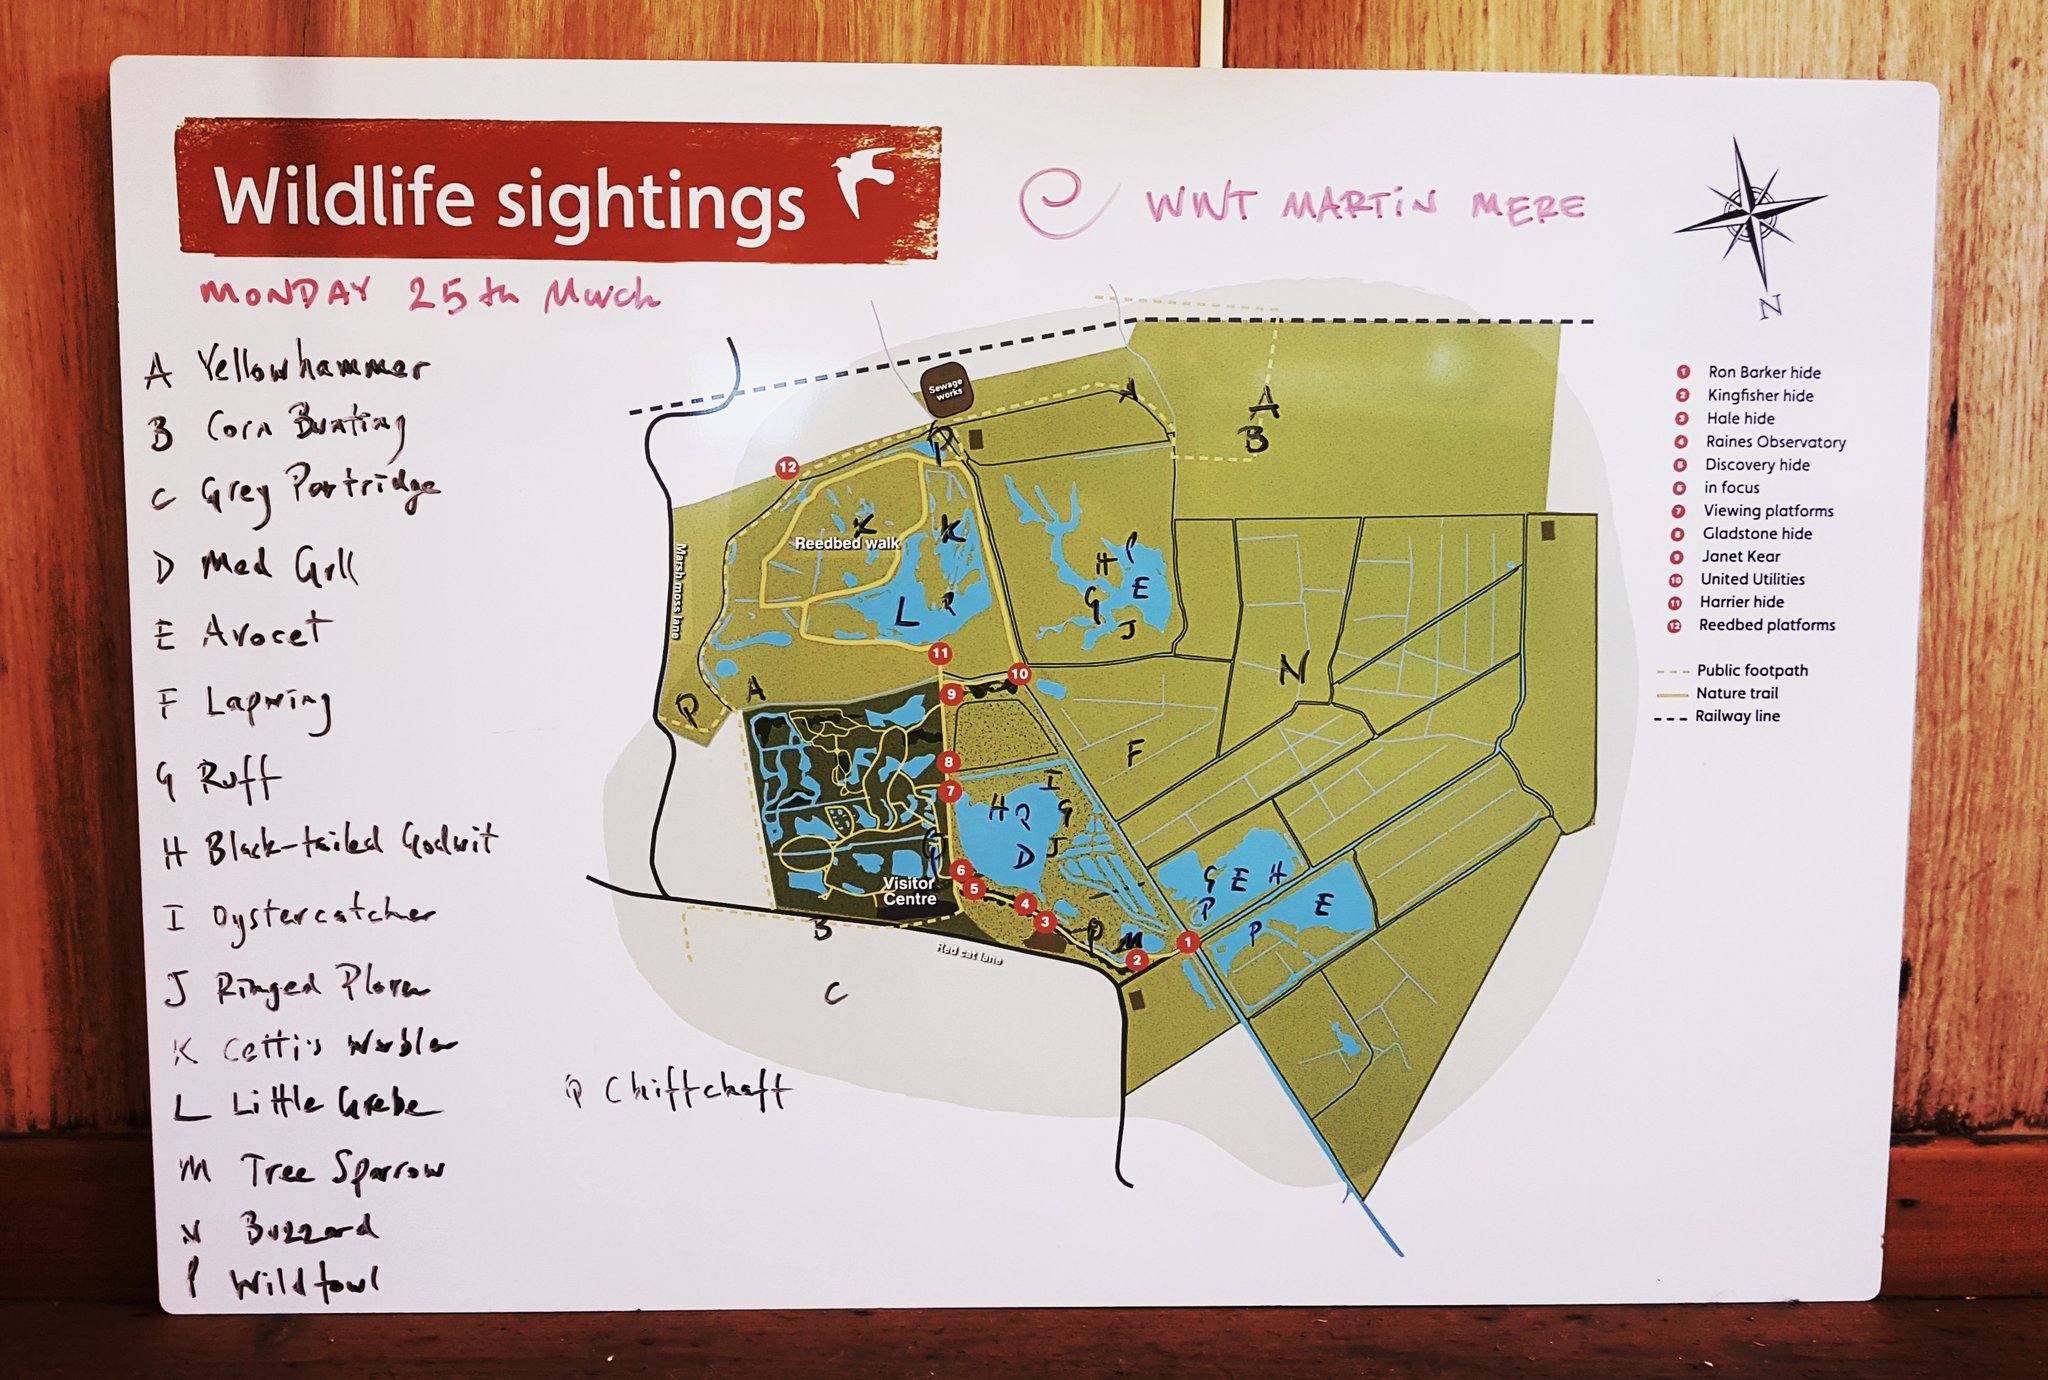 Wildlife sightings
@ WWT MARTIN MERE
MONDAY 25th March
N
A Yellowhammer
B Corn Bunting
C Grey Partridge
D Med Gull
E Avocet
F Lapwing
G Ruff
H Black-tailed Godwit
I Oystercatcher
J Ringed Plover
K Cetti's Warbler
L Little Grebe
M Tree Sparrow
N Buzzard
P Wildfowl
Q Chiffchaff
Sewage
works
A
A
B
12
K
K
Reedbed walk
Marsh moss lane
P
H
E
G
L
P
J
11
10
9
N
Q
A
F
8
I
7
H
P
G
D
J
Q
6
5
Visitor
Centre
4
3
G E H
P
E
P
B
Red cat lane
Q
M
2
1
C
1 Ron Barker hide
2 Kingfisher hide
3 Hale hide
4 Raines Observatory
5 Discovery hide
6 in focus
7 Viewing platforms
8 Gladstone hide
9 Janet Kear
10 United Utilities
11 Harrier hide
12 Reedbed platforms
Public footpath
Nature trail
Railway line